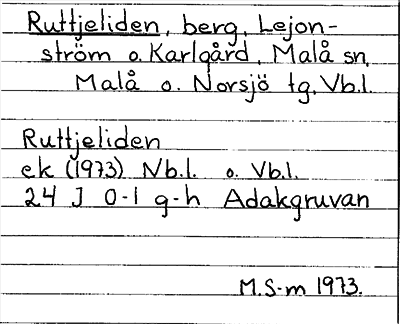 Ruttjeliden, berg, Lejon-
ström o. Karlgård, Malå sn,
Malå o. Norsjö tg, Vb.l.
Ruttjeliden
ek (1973) Nb.l. o. Vb.l.
24 J 0-1 g-h Adakgruvan
M.S-m 1973.